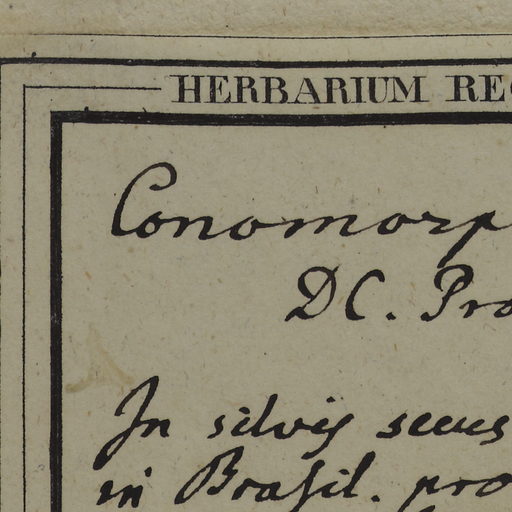 HERBARIUM REG
Conomorp
DC. Pro
In silvis secus
in Brasil. pro